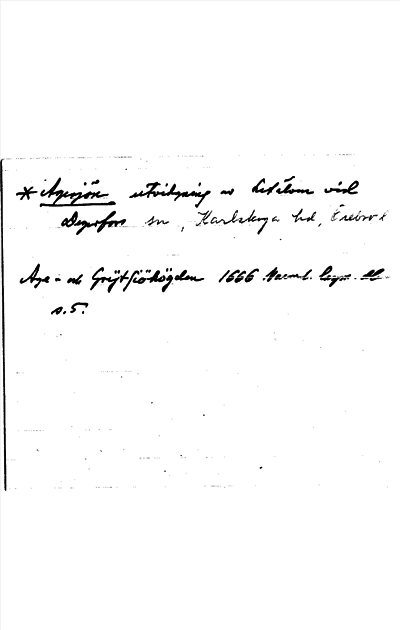 * Agesjön utvidgning av Letälven vid
Degerfors sn, Karlskoga hd, Örebro l
Age- och Gryt siö högden 1666 Värml.
s. 5.